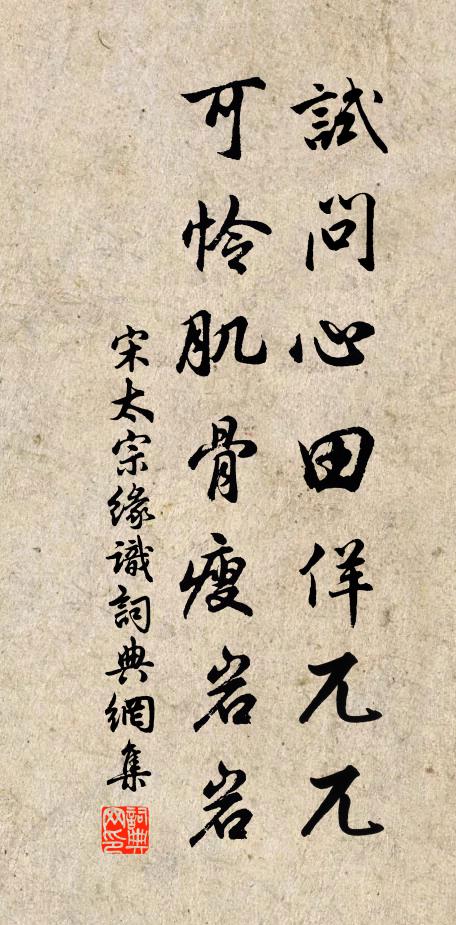 試問心田佯兀兀
可怜肌骨瘦岩岩
宋太宗缘識詞典網集
詞典网印